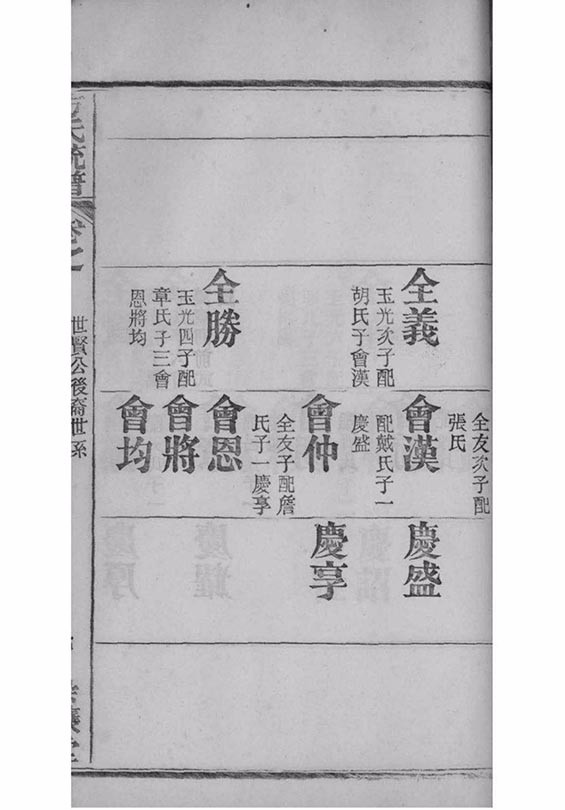 全義
玉光次子配
胡氏子會漢
全勝
玉光四子配
章氏子三會
恩將均
全友次子配
張氏
會漢
配戴氏子一
慶盛
會仲
全友子配詹
氏子一慶享
會恩
會將
會均
慶盛
慶享
氏統譜
卷之
世賢公後裔世系